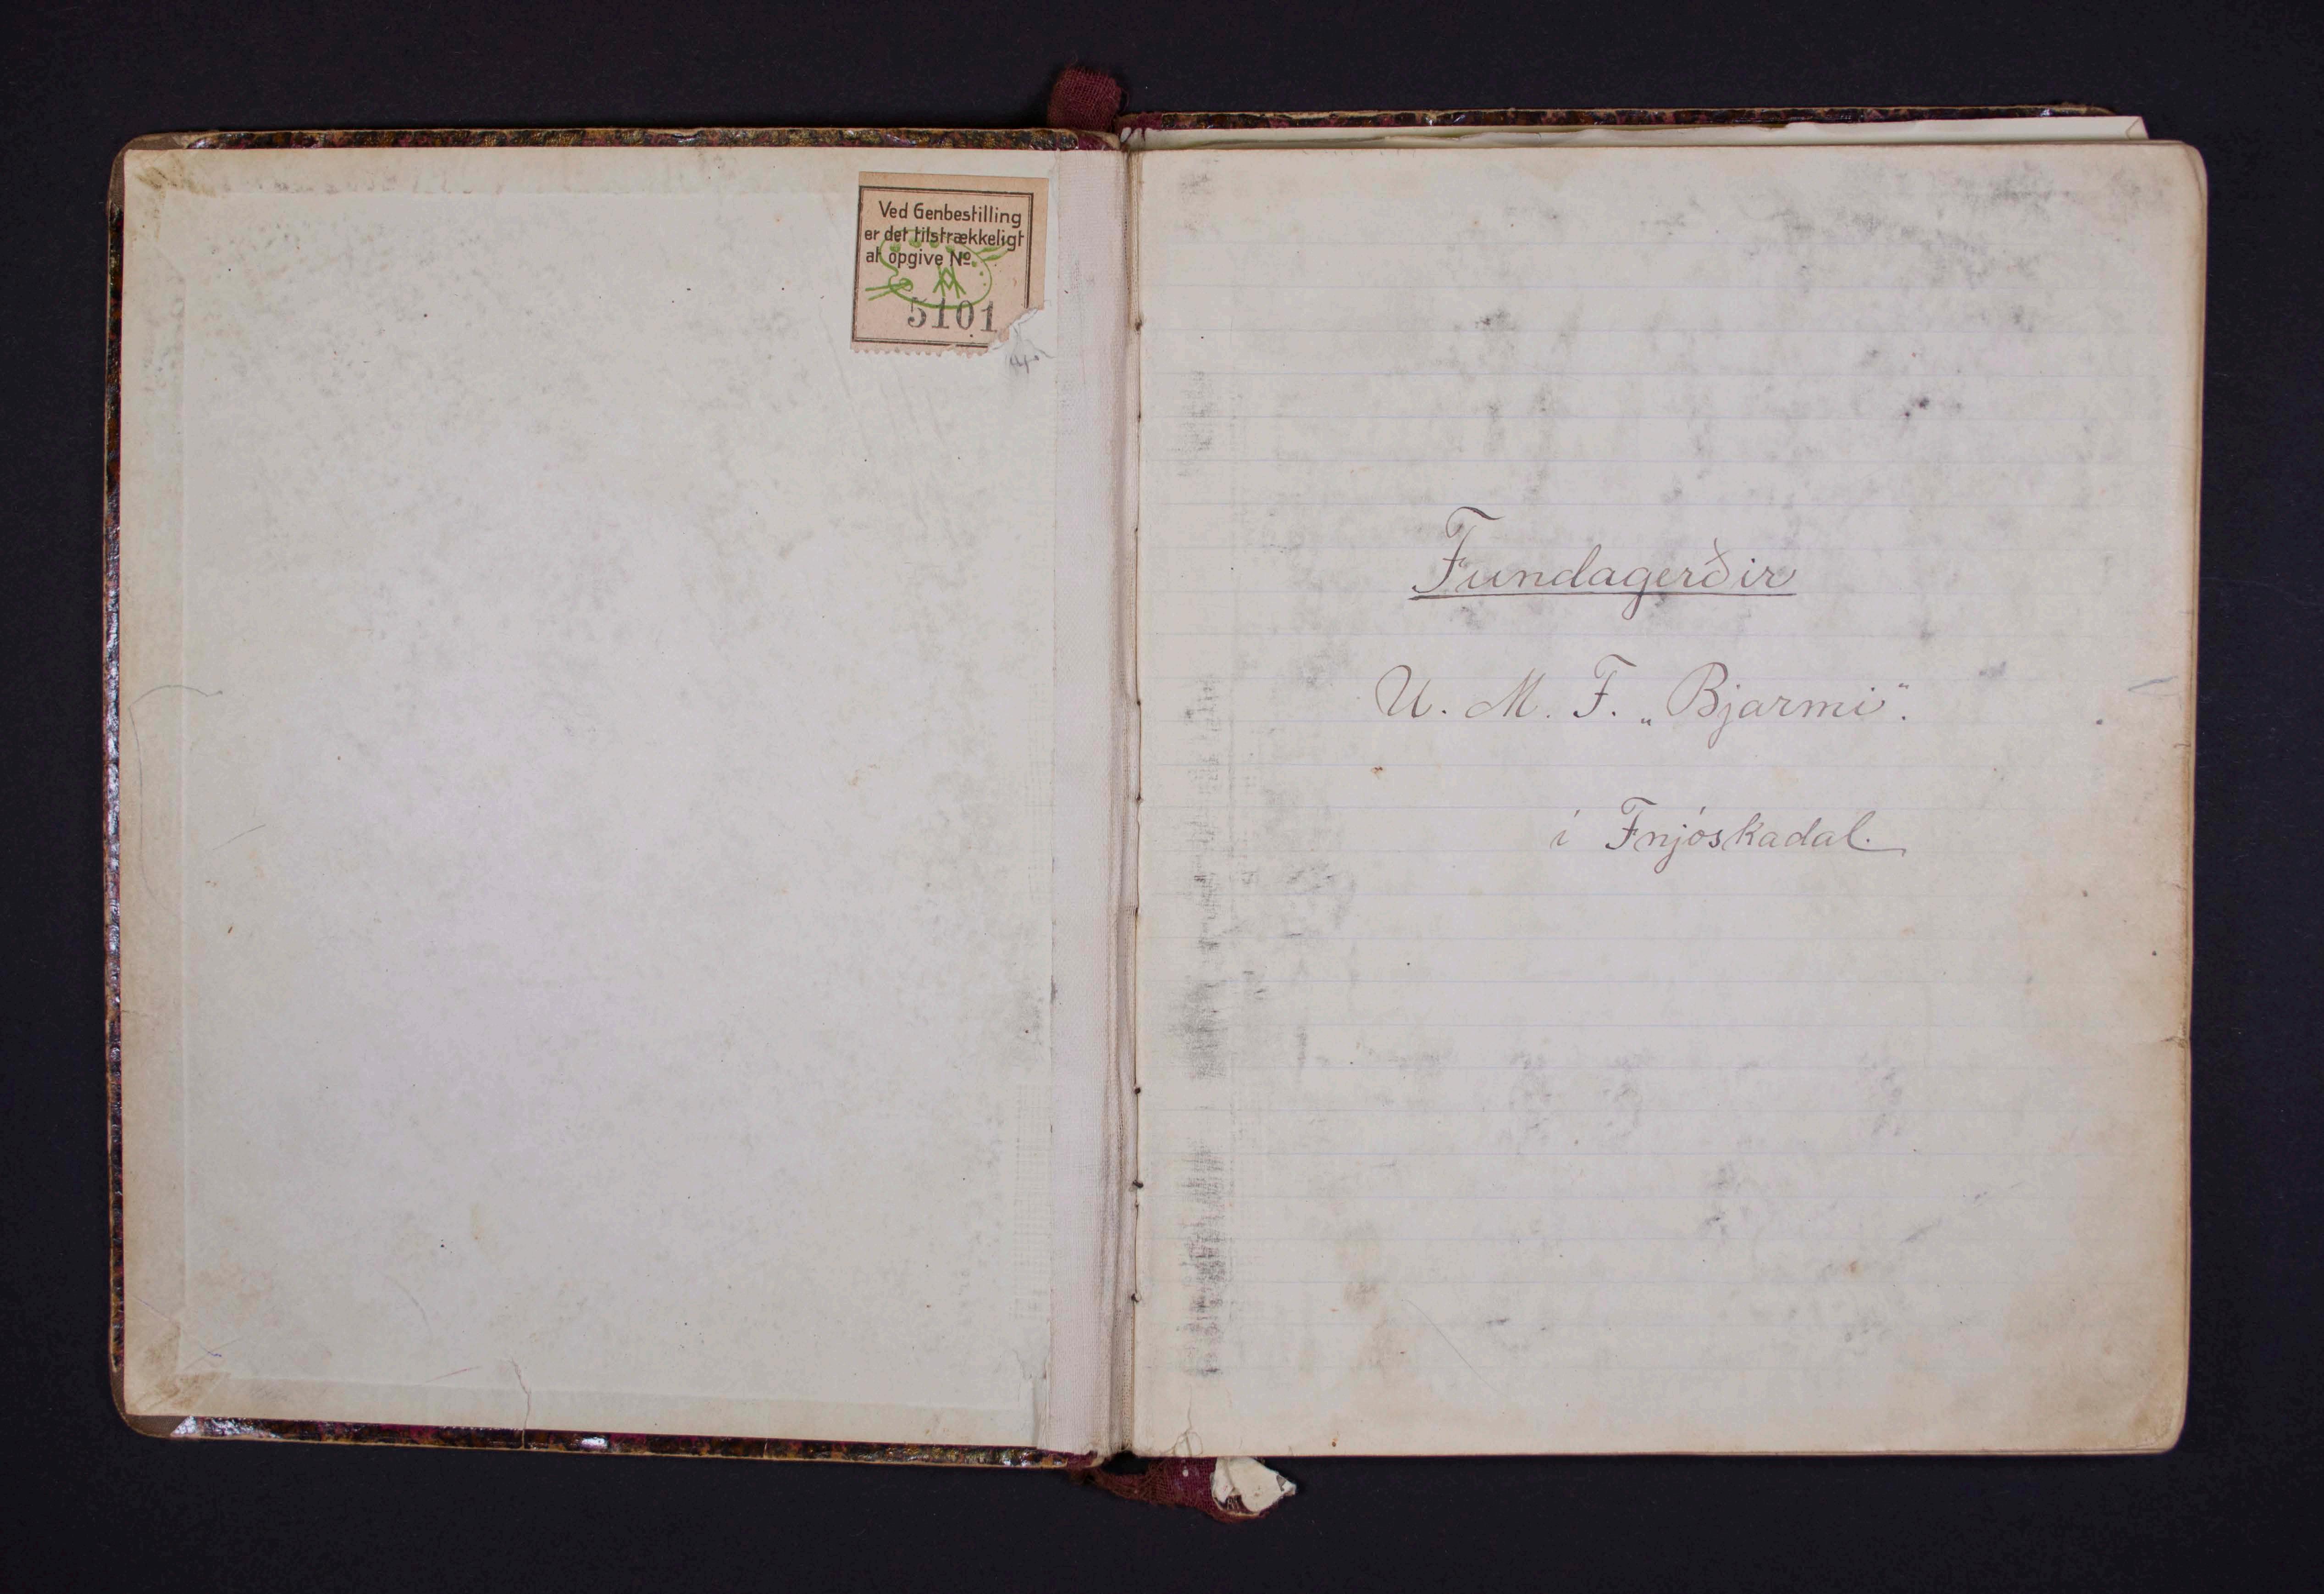 Ved Genbestilling
er det tilstrækkeligt
at opgive No.
5101
Fundagerðir
U. M. F. „Bjarmi“.
í Fnjóskadal.